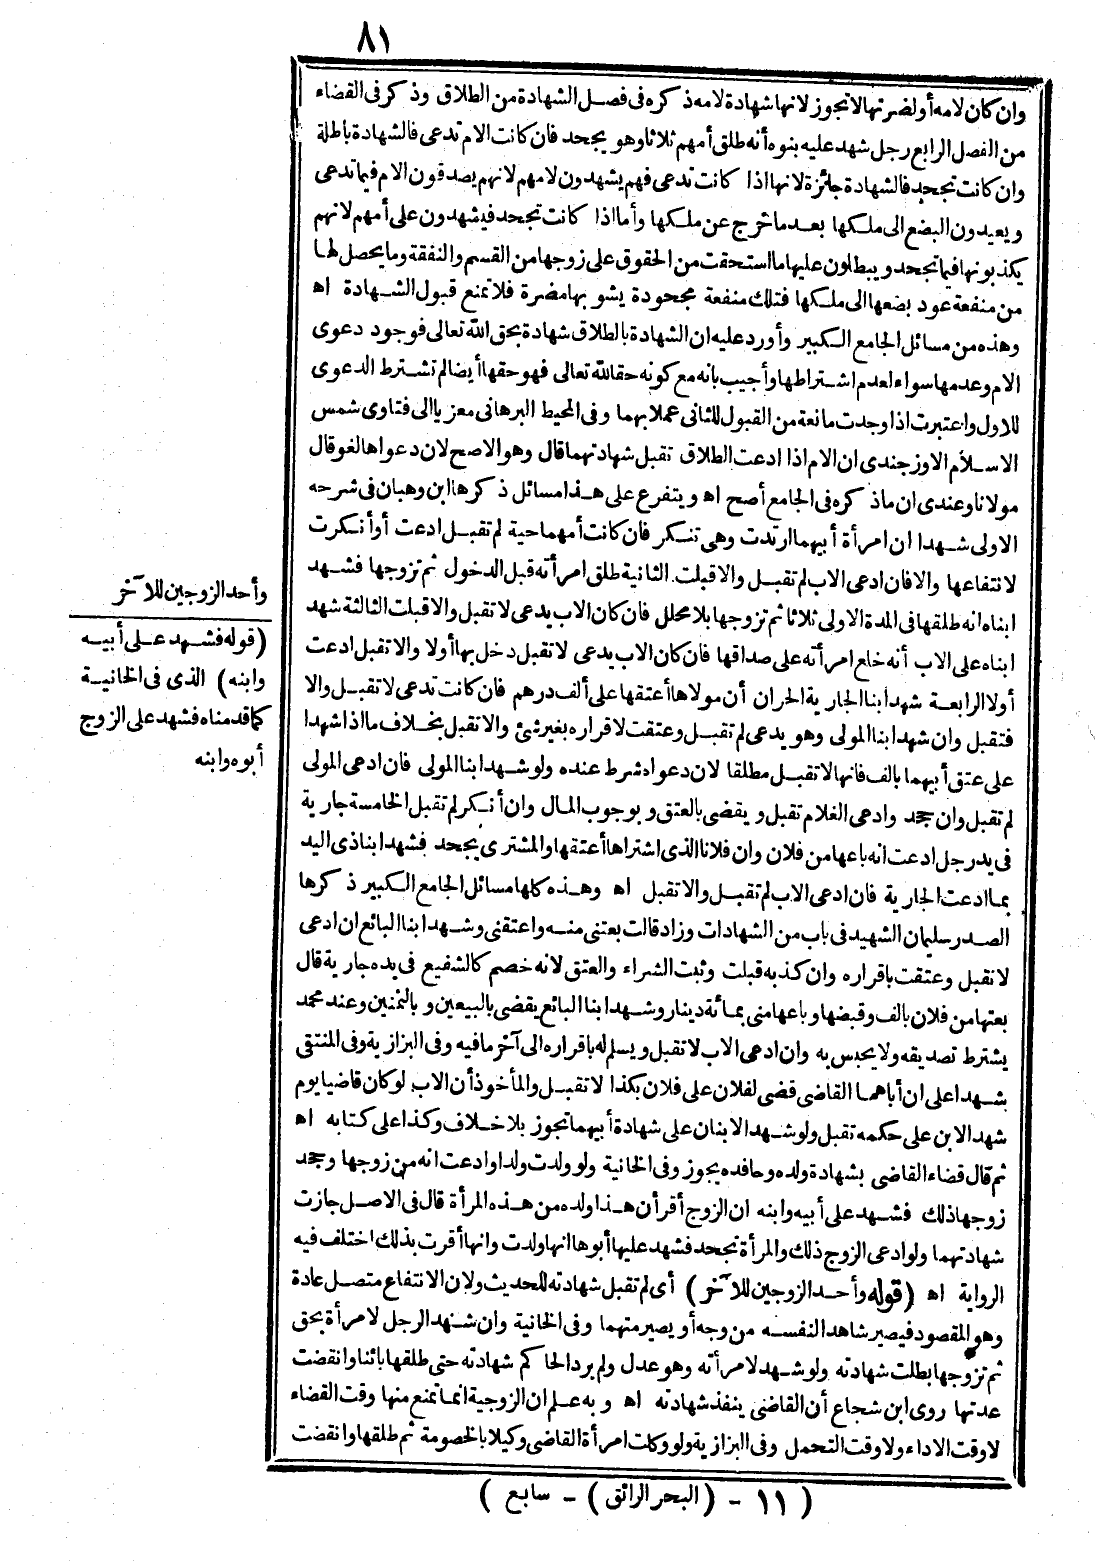 ٨١
وان كان لامه أو لضرتها لا تجوز لانها شهادة لامه ذكره فى فصل الشهادة من الطلاق وذكر فى القضاء
من الفصل الرابع رجل شهد عليه بنوه أنه طلق أمهم ثلاثا وهو يجحد فان كانت الام تدعى فالشهادة باطلة
وان كانت تجحد فالشهادة جائزة لانها اذا كانت تدعى فهم يشهدون لامهم لانهم يصدقون الام فيما تدعى
ويعيدون البضع الى ملكها بعد ما خرج عن ملكها وأما اذا كانت تجحد فيشهدون على أمهم لانهم
يكذبونها فيما تجحد ويبطلون عليها ما استحقت من الحقوق على زوجها من القسم والنفقة وما يحصل لها
من منفعة عود بضعها الى ملكها فتلك منفعة مجحودة يشوبها مضرة فلا تمنع قبول الشهادة اه
وهذه من مسائل الجامع الكبير وأورد عليه ان الشهادة بالطلاق شهادة بحق الله تعالى فوجود دعوى
الام وعدمها سواء لعدم اشتراطها وأجيب بانه مع كونه حقا لله تعالى فهو حقها أيضا لم تشترط الدعوى
للاول واعتبرت اذا وجدت مانعة من القبول للثانى عملا بهما وفى المحيط البرهانى معزيا الى فتاوى شمس
الاسلام الاوزجندى ان الام اذا ادعت الطلاق تقبل شهادتهما قال وهو الاصح لان دعواها لغو قال
مولانا وعندى ان ما ذكره فى الجامع أصح اه ويتفرع على هذا مسائل ذكرها ابن وهبان فى شرحه
الاولى شهدا ان امرأة أبيهما ارتدت وهى تنكر فان كانت أمهما حية لم تقبل ادعت أو أنكرت
لانتفاعها والا فان ادعى الاب لم تقبل والا قبلت. الثانية طلق امرأته قبل الدخول ثم تزوجها فشهد
ابناه انه طلقها فى المدة الاولى ثلاثا ثم تزوجها بلا محلل فان كان الاب يدعى لا تقبل والا قبلت الثالثة شهد
ابناه على الاب أنه خلع امرأته على صداقها فان كان الاب يدعى لا تقبل دخل بها أولا والا تقبل ادعت
أولا الرابعة شهد ابنا الجارية الحران أن مولاها أعتقها على ألف درهم فان كانت تدعى لا تقبل والا
فتقبل وان شهد ابنا المولى وهو يدعى لم تقبل وعتقت لاقراره بغير شئ والا تقبل بخلاف ما اذا شهدا
على عتق أبيهما بالف فانها لا تقبل مطلقا لان دعواه شرط عنده ولو شهد ابنا المولى فان ادعى المولى
لم تقبل وان جحد وادعى الغلام تقبل ويقضى بالعتق وبوجوب المال وان أنكر لم تقبل الخامسة جارية
فى يد رجل ادعت انه باعها من فلان وان فلانا الذى اشتراها أعتقها والمشترى يجحد فشهد ابنا ذى اليد
بما ادعت الجارية فان ادعى الاب لم تقبل والا تقبل اه وهذه كلها مسائل الجامع الكبير ذكرها
الصدر سليمان الشهيد فى باب من الشهادات وزاد قالت بعتنى منه واعتقنى وشهد ابنا البائع ان ادعى
لا تقبل وعتقت باقراره وان كذبه قبلت وثبت الشراء والعتق لانه خصم كالشفيع فى يده جارية قال
بعتها من فلان بالف وقبضها وباعها منى بمائة دينار وشهد ابنا البائع يقضى بالبيعين وبالثمنين وعند محمد
يشترط تصديقه ولا يحبس به وان ادعى الاب لا تقبل ويسلم له باقراره الى آخر ما فيه وفى البزازية وفى المنتقى
شهدا على ان أباهما القاضى قضى لفلان على فلان بكذا لا تقبل والمأخوذ أن الاب لو كان قاضيا يوم
شهد الابن على حكمه تقبل ولو شهد الابنان على شهادة أبيهما تجوز بلا خلاف وكذا على كتابه اه
ثم قال قضاء القاضى بشهادة ولده وحافده يجوز وفى الخانية ولو ولدت ولدا وادعت انه من زوجها وجحد
زوجها ذلك فشهد على أبيه وابنه ان الزوج أقر أن هذا ولده من هذه المرأة قال فى الاصل جازت
شهادتهما ولو ادعى الزوج ذلك والمرأة تجحد فشهد عليها أبوها انها ولدت وانها أقرت بذلك اختلف فيه
الرواية اه (قوله وأحد الزوجين للآخر) أى لم تقبل شهادته للحديث ولان الانتفاع متصل عادة
وهو المقصود فيصير شاهدا لنفسه من وجه أو يصير متهما وفى الخانية وان شهد الرجل لامرأة بحق
ثم تزوجها بطلت شهادته ولو شهد لامرأته وهو عدل ولم يرد الحاكم شهادته حتى طلقها بائنا وانقضت
عدتها روى ابن شجاع أن القاضى ينفذ شهادته اه وبه علم ان الزوجية انما تمنع منها وقت القضاء
لا وقت الاداء ولا وقت التحمل وفى البزازية ولو وكلت امرأة القاضى وكيلا بالخصومة ثم طلقها وانقضت
وأحد الزوجين للآخر
(قوله فشهد على أبيه
وابنه) الذى فى الخانية
كما قدمناه فشهد على الزوج
أبوه وابنه
(١١ - (البحر الرائق) - سابع)